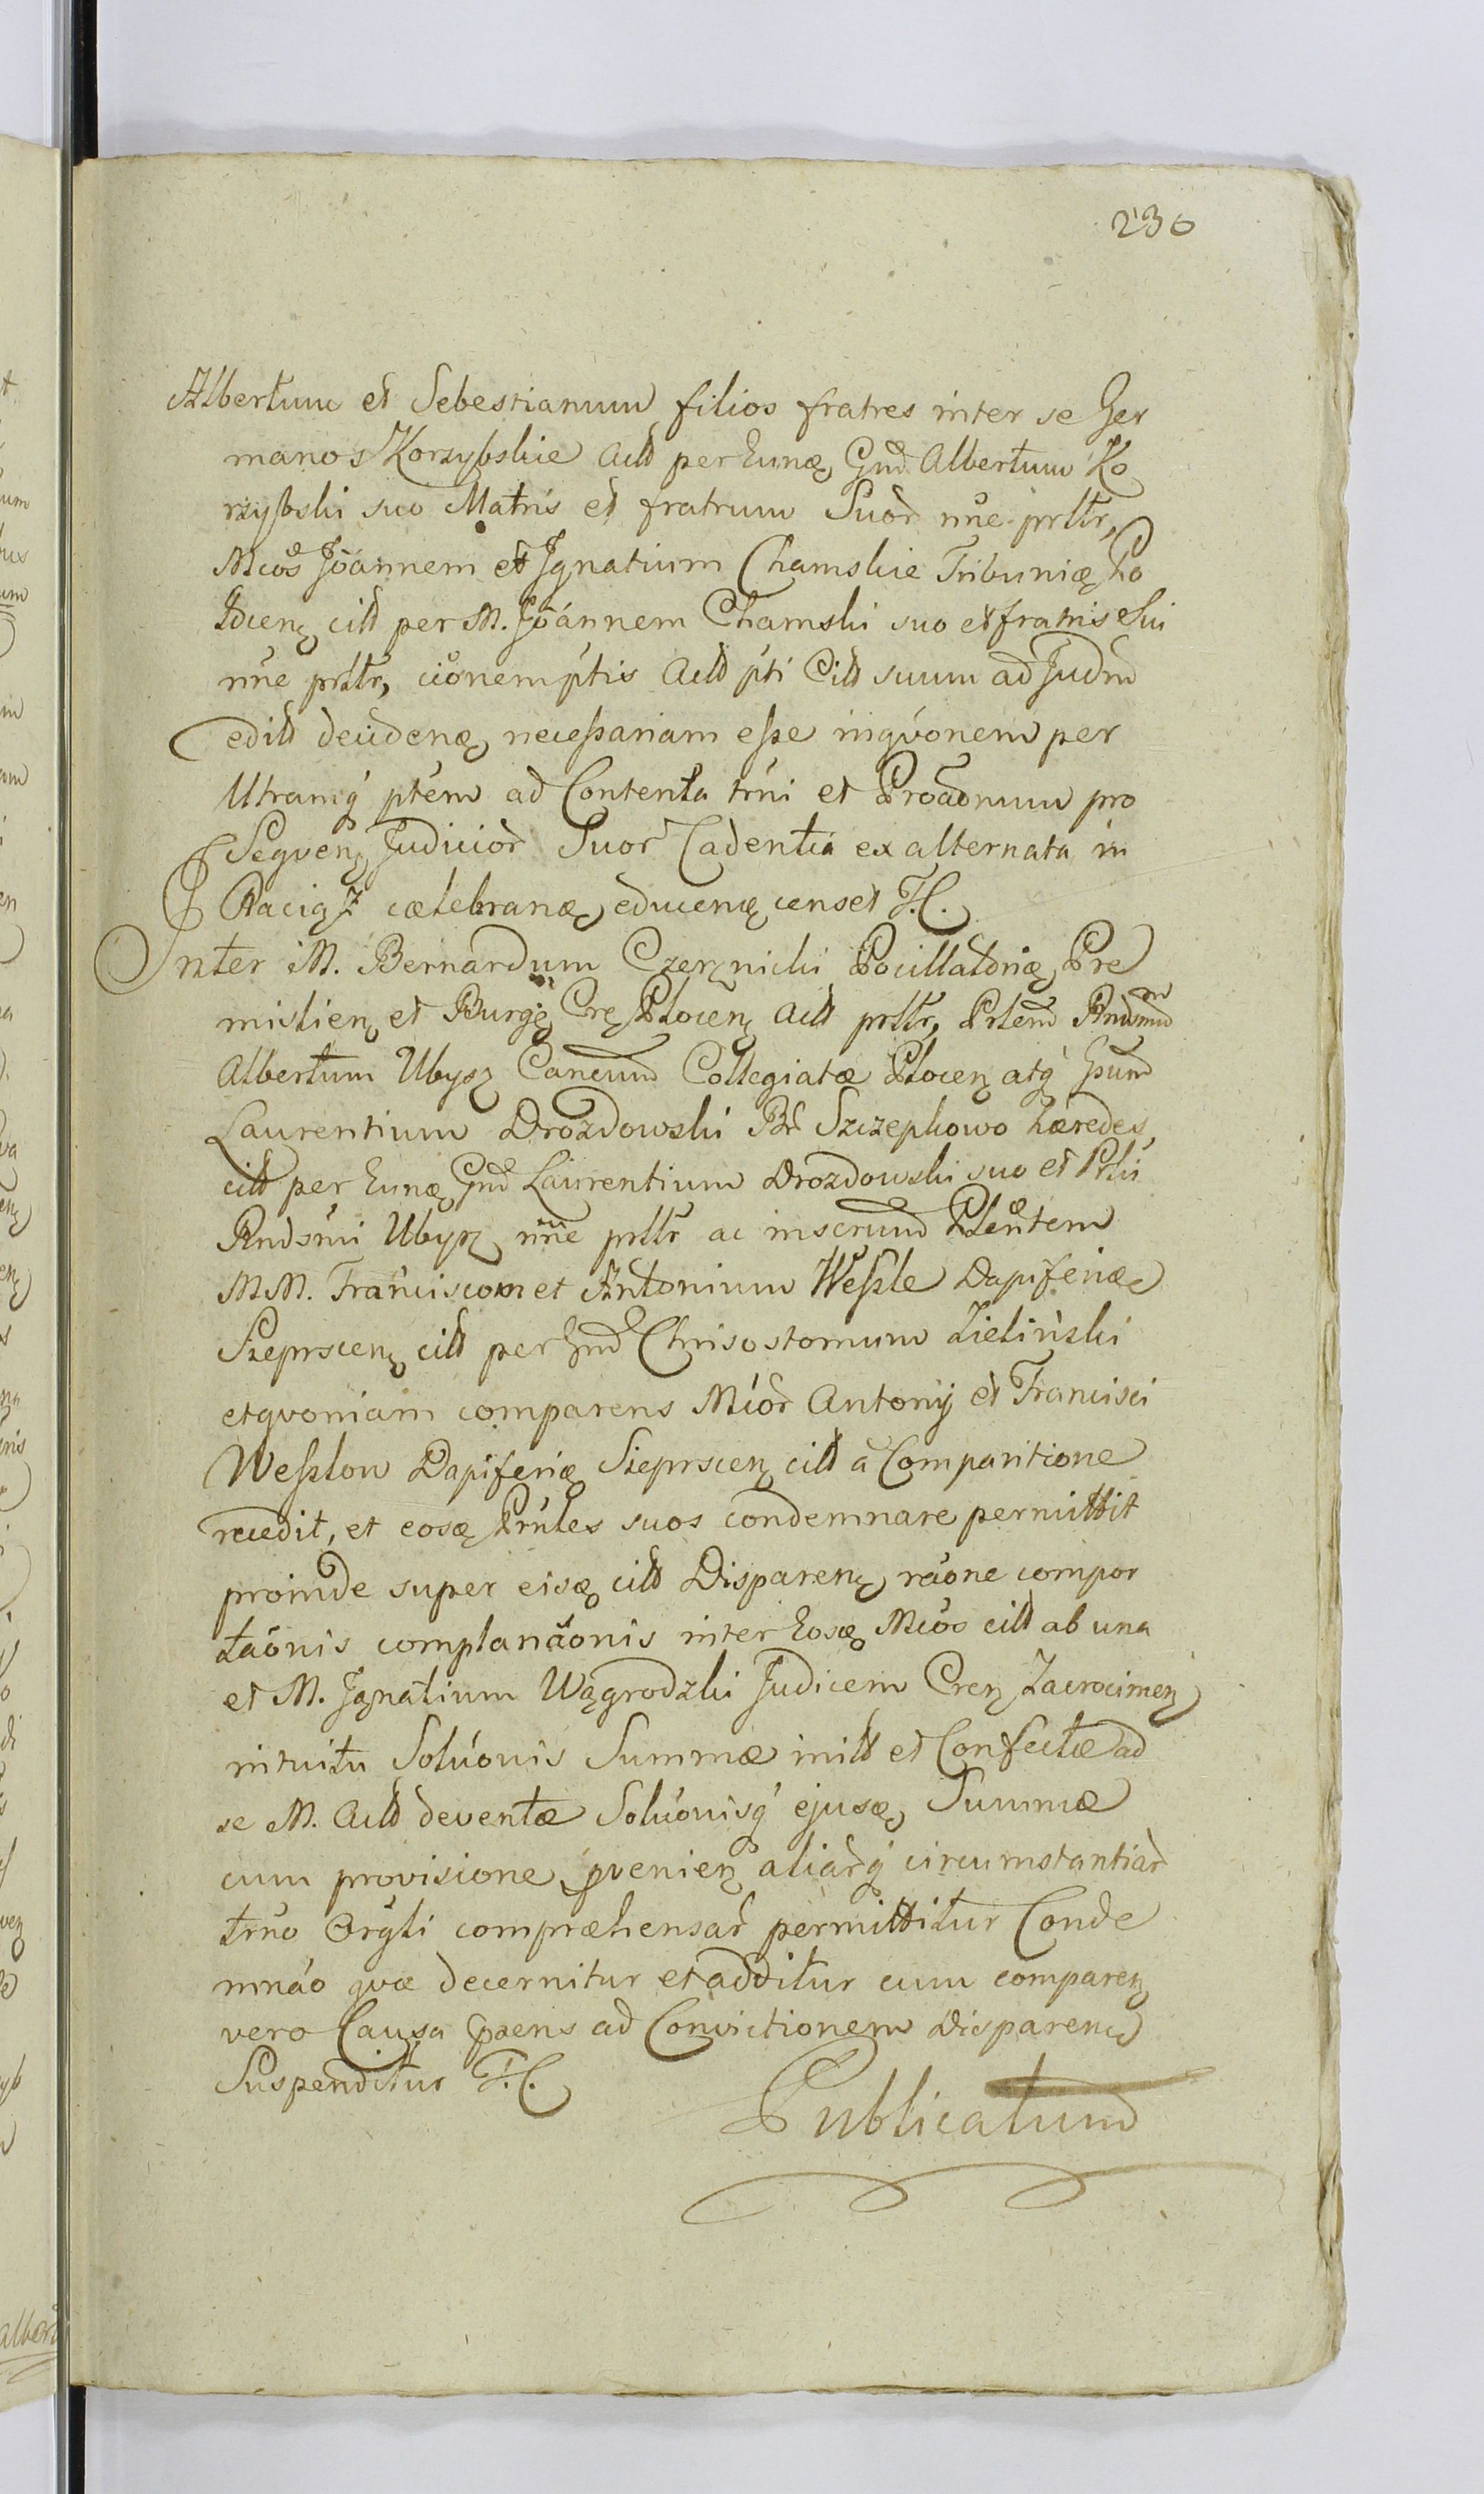 230
Albertum et Sebestianum filios fratres inter se Ger
manos Korzybskie Actt per Eunę Gnd Albertum Ko
rzybski suo Matris et fratrum Suor nne prltr,
Mcos Joannem et Ignatium Chamskie Tribunię Po
citt per M. Joannem Chamski suo et fratris Sui
nne prltr, cionem ptis Actt pti Citt suum ad Judm
editt decidenę necessariam esse inqvonem per
Utramq ptem ad Contenta trni et Proadnum pro
Seqvenę Judicior Suor Cadentia ex alternata in
Raciąż cælebranę educenę censet T.C.
Inter M. Bernardum Czerznicki Pocillatorię Pre
mislienę et Burgę Crę Plocenę Actt prltr, Prlem Rndsmum
Albertum Ubysz Cancum Collegiatæ Plocenę atq Gnum
Laurentium Drozdowski Br Szczepkowo hæredes
citt per Eunę Gnd Laurentium Drozdowski suo et Prlis
Rndsmi Ubysz nne prltr ac inscrum Plentem
M.M. Franciscom et Antonium Weszle Dapiferiæ
Szeprscenę citt per Gnd Chrisostomum Zieliński
et qvoniam comparens Mcor Antonij et Francisci
Weszlow Dapiferię Szeprscenę citt a Comparitione
recedit, et eosę Prnles suos condemnare permittit
proinde super eisę citt Disparenę raone compor
taonis complanaonis inter Eosę Mcos citt ab una
et M. Ignatium Wągrodzki Judicem Crenę Zacrocimenę
intuitu Soluonis Summæ initt et Confectæ ad
se M. Actt deventæ Soluonisq ejusę Summæ
cum provisione pvenienę aliarq circumstantiar
trno Orgli compræhensar permittitur Conde
mnao qvæ decernitur et additur cum comparenę
vero Causa pens ad Convictionem Disparenę
Suspenditur T.C.
Publicatum